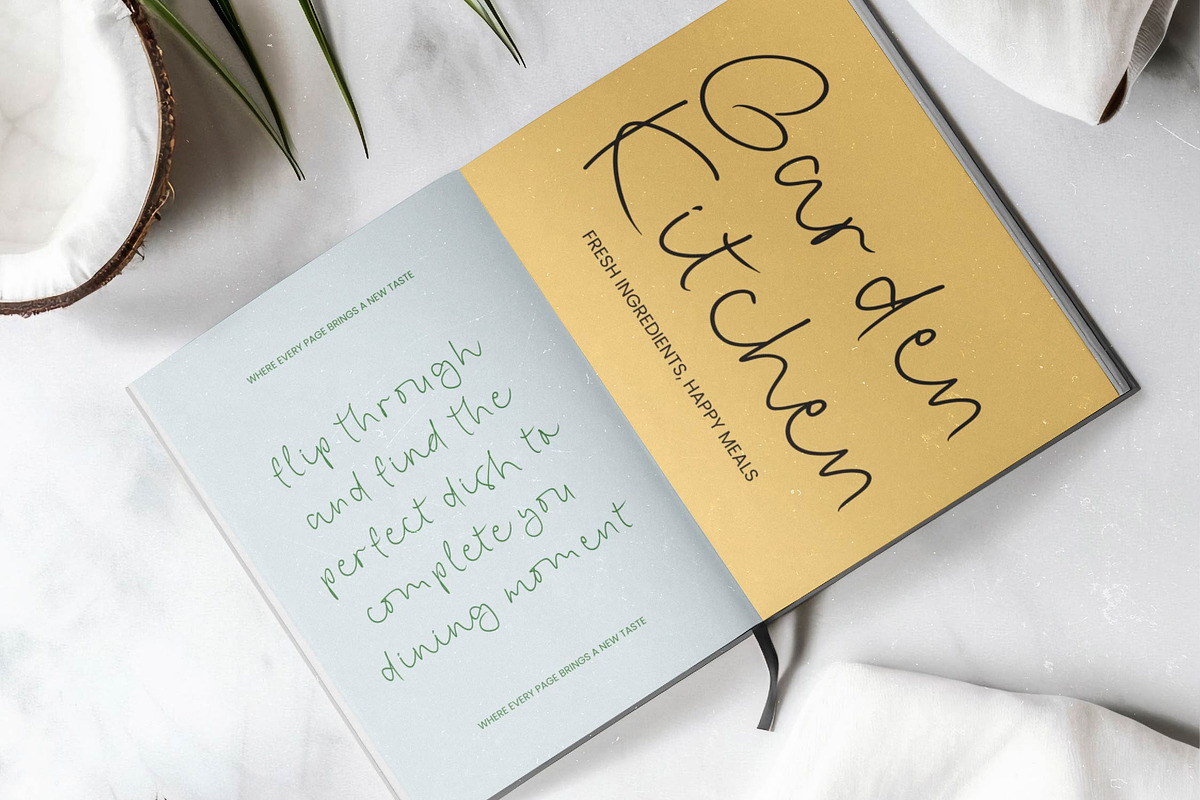 WHERE EVERY PAGE BRINGS A NEW TASTE
flip through
and find the
perfect dish to
complete you
dining moment
WHERE EVERY PAGE BRINGS A NEW TASTE
Garden
Kitchen
FRESH INGREDIENTS, HAPPY MEALS